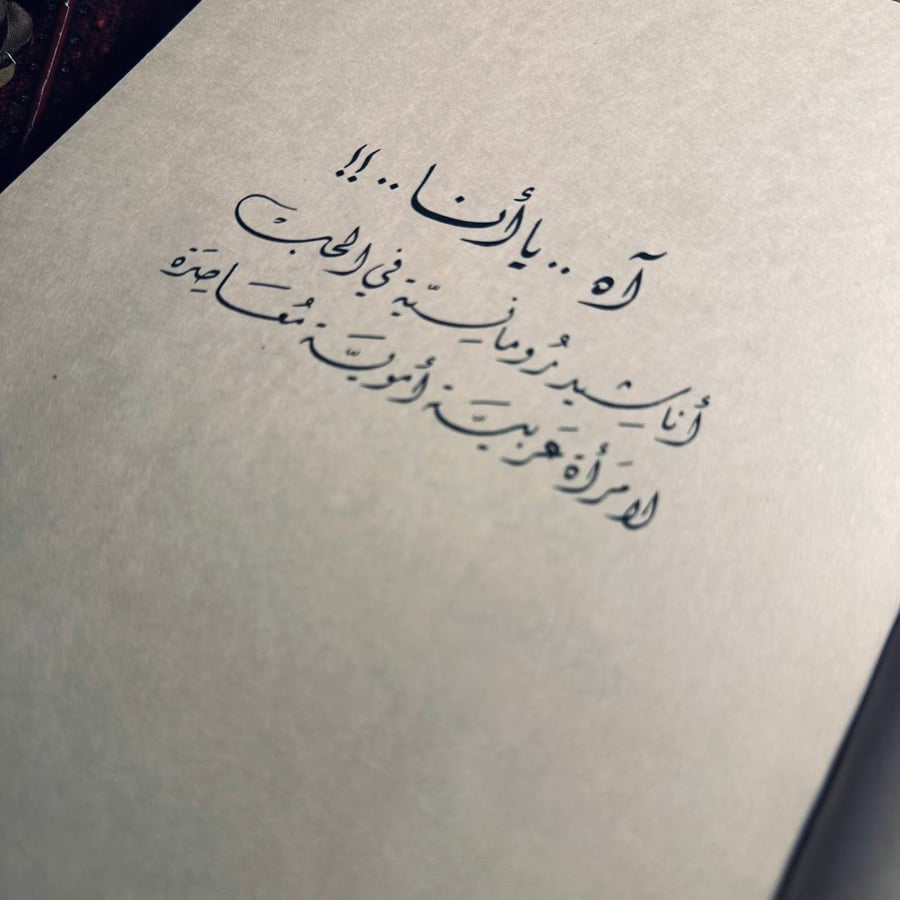 آه .. يا أنا .. !!
أناشيد رُومانسيّة في الحبّ
لامرَأة عَربيَّة أمويَّة مُعَاصِرَة